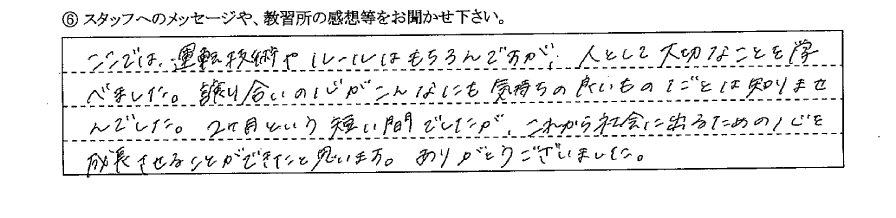 ⑥ スタッフへのメッセージや、教習所の感想等をお聞かせ下さい。
ここでは、運転技術やルールはもちろんですが、人として大切なことを学
べました。譲り合いの心がこんなにも気持ちの良いものだとは知りませ
んでした。2ヶ月という短い間でしたが、これから社会に出るための心を
成長させることができたと思います。ありがとうございました。